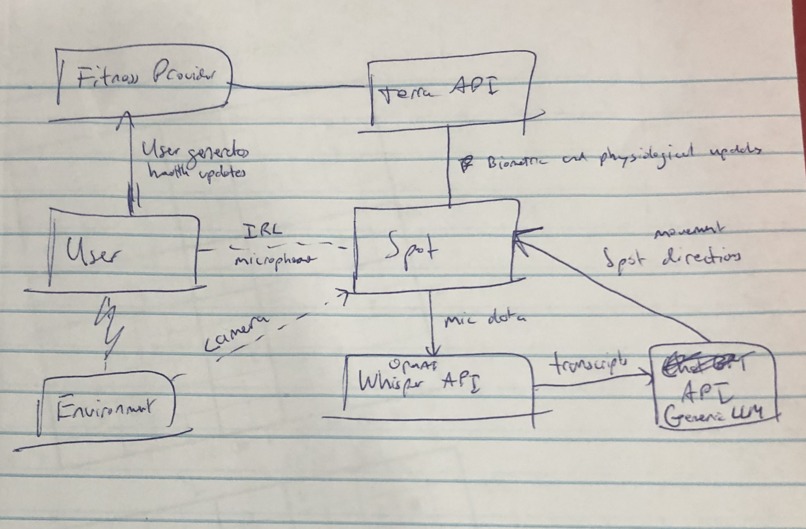 Fitness Provider
Terra API
User generates
health updates
Biometric and physiological updates
User
IRL
microphone
Spot
movement
Spot directions
camera
mic data
Environment
OpenAI
Whisper API
transcripts
API
Generic LLM